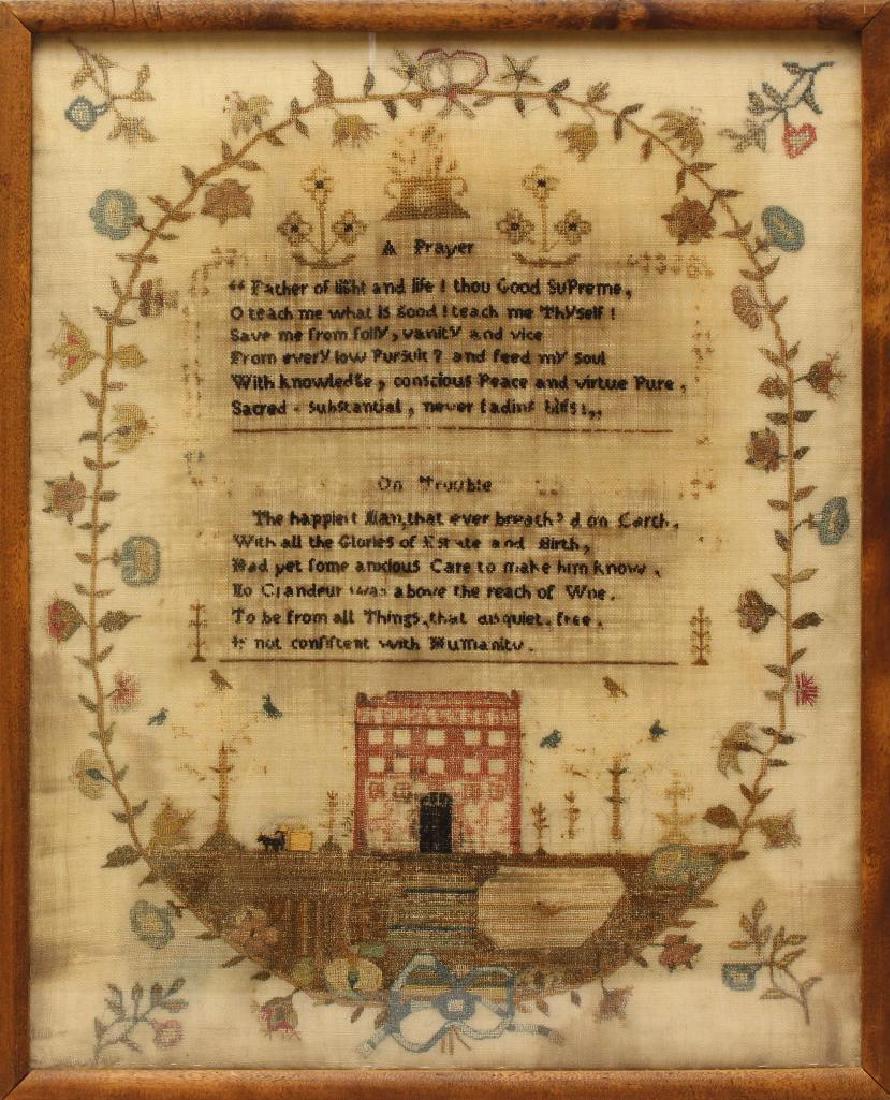 A Prayer
“ Father of light and life ! thou Good Supreme,
O teach me what is good ! teach me Thyself !
Save me from folly, vanity and vice
From every low Pursuit ? and feed my Soul
With knowledge, conscious Peace and virtue Pure,
Sacred. substantial, never fading bliss !,,
On Trouble
The happiest Man, that ever breath'd on Earth.
With all the Glories of Estate and Birth,
Had yet ſome anxious Care to make him know.
No Grandeur was above the reach of Woe.
To be from all Things, that disquiet, free.
Is not conſiſtent with Humanity.